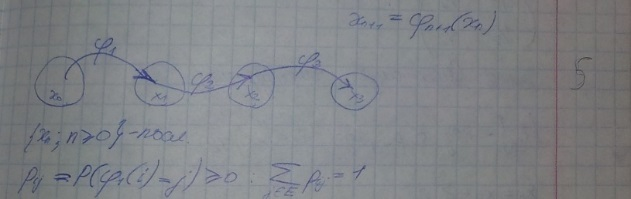 x_{n+1} = φ_{n+1}(x_n)
φ_1 φ_2 φ_3
x_0 x_1 x_2 x_3
{x_n; n≥0} - посл.
p_{ij} = P(φ_1(i) = j) ≥ 0 : ∑_{j∈E} p_{ij} = 1